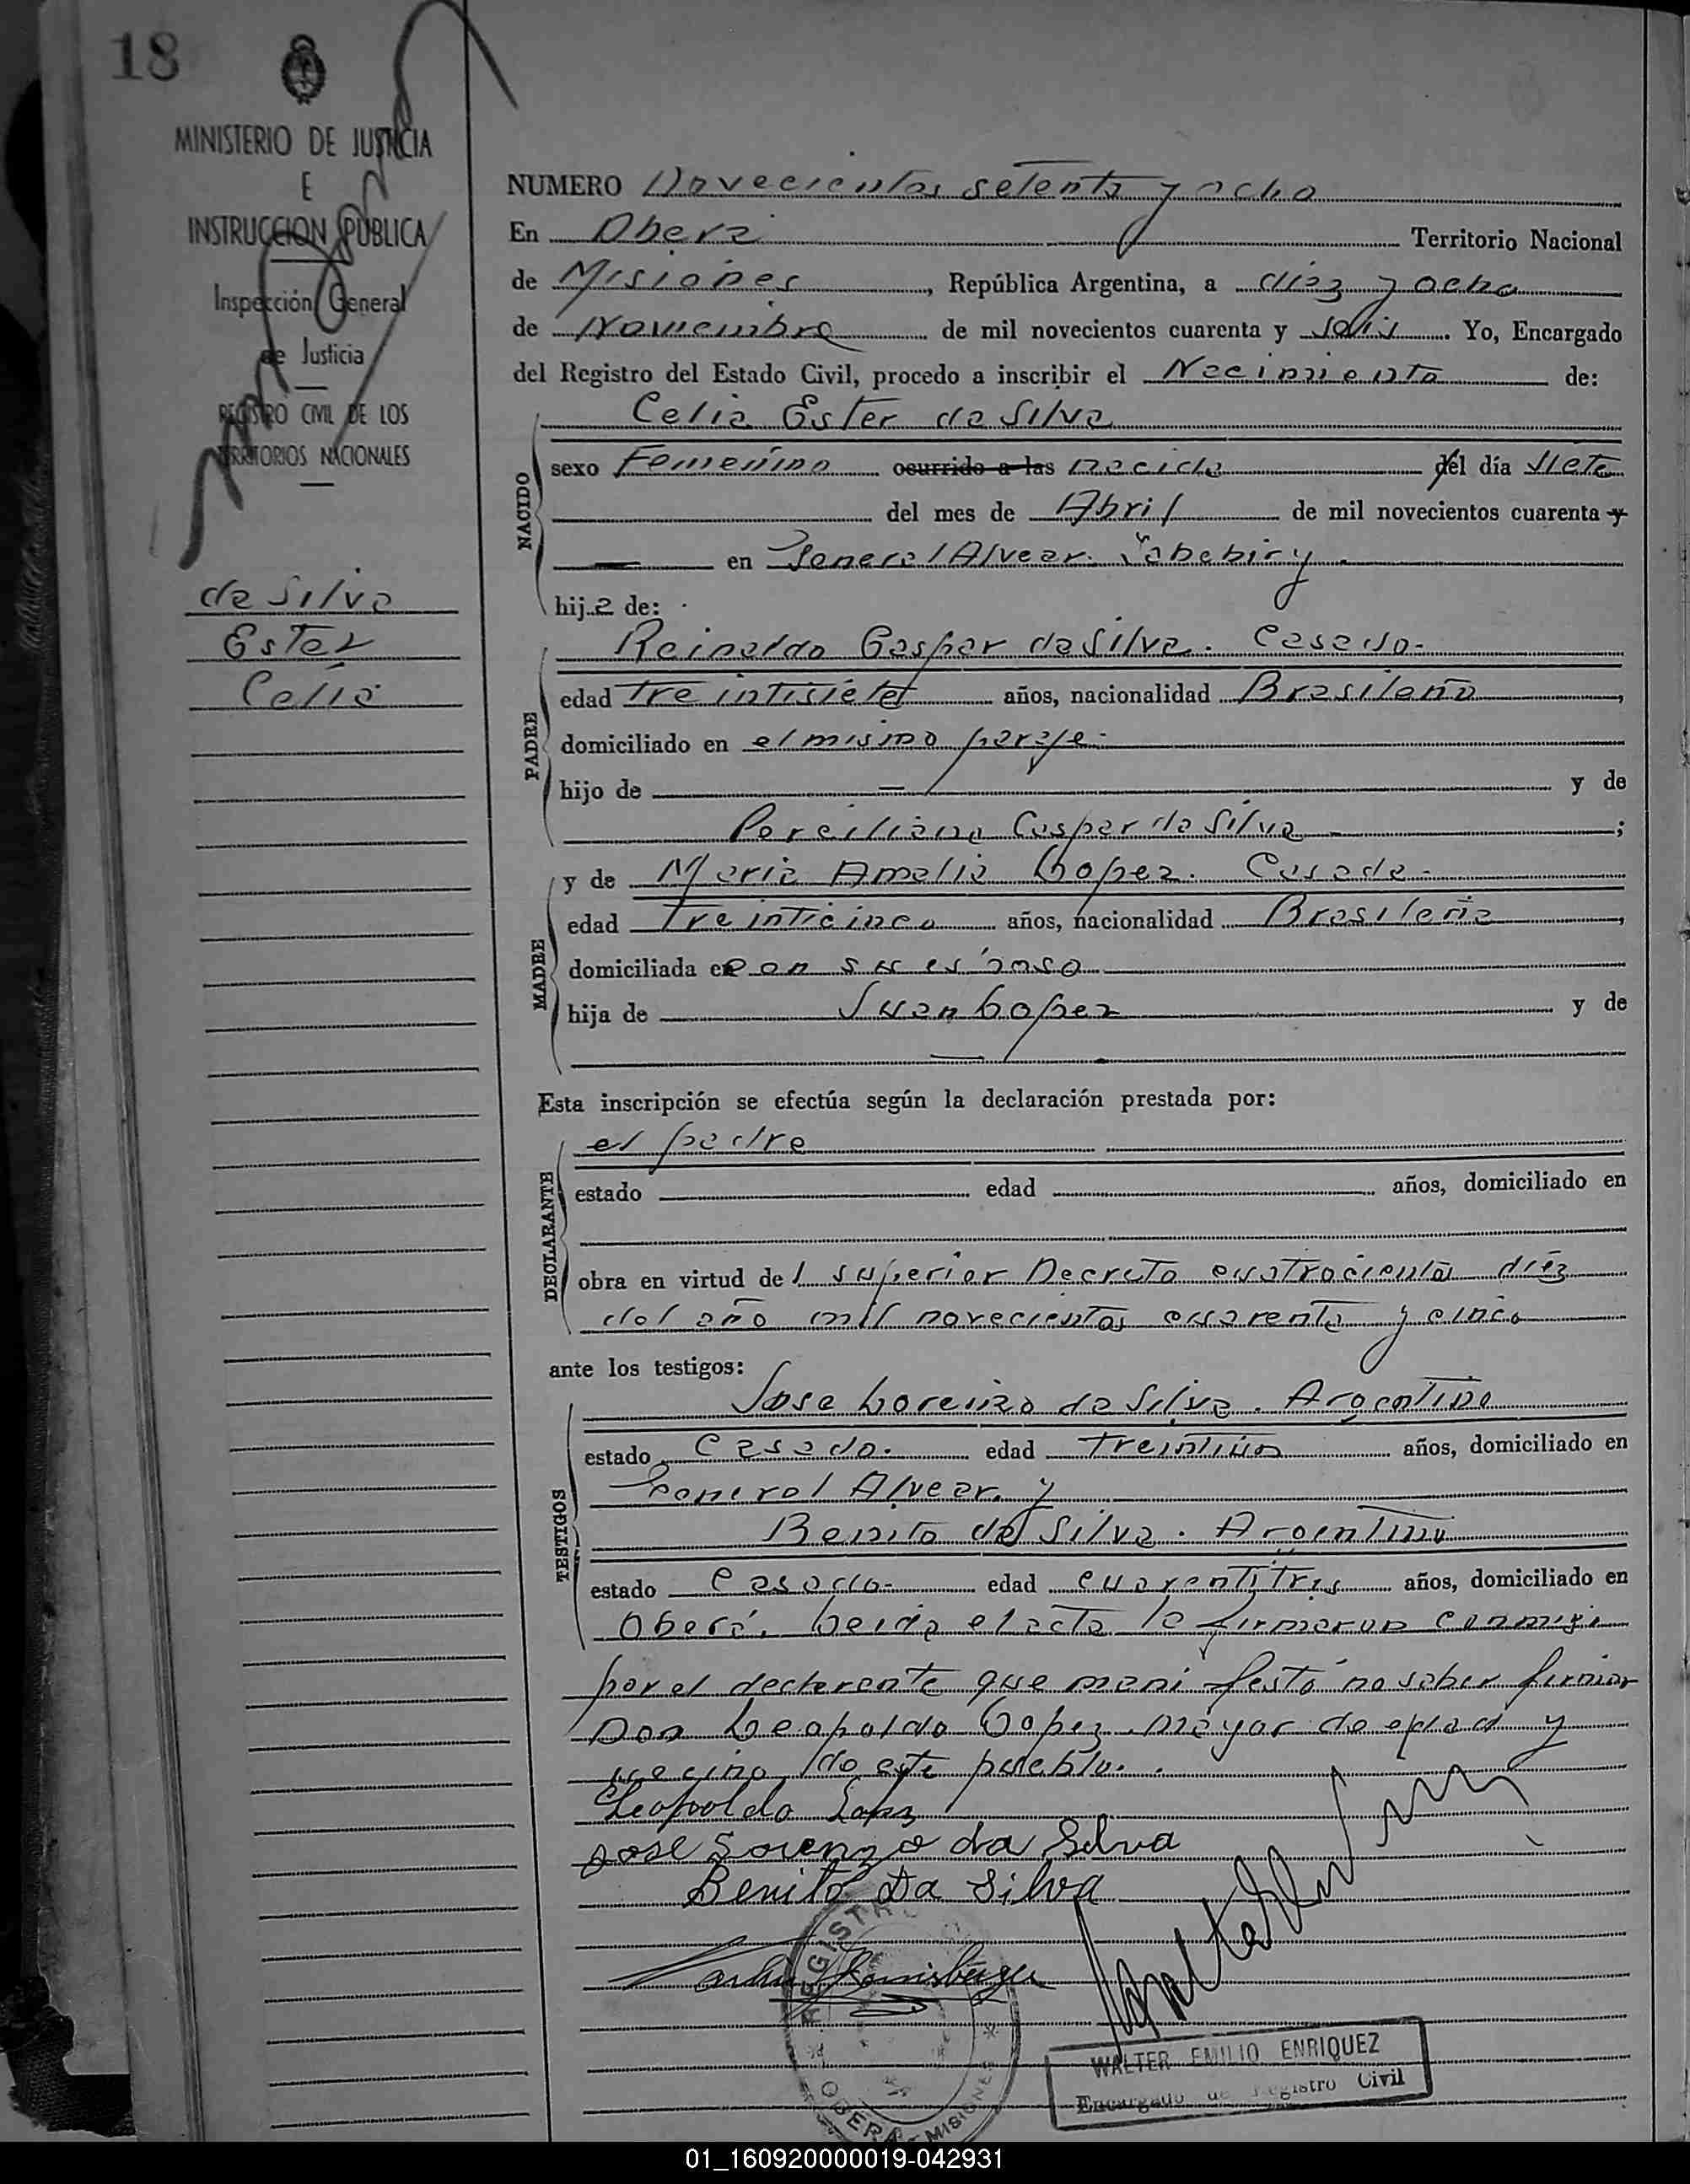 18
MINISTERIO DE JUSTICIA
E
INSTRUCCION PUBLICA
Inspección General
de Justicia
REGISTRO CIVIL DE LOS
TERRITORIOS NACIONALES
da Silva
Ester
Celia
NUMERO Novecientos setenta y ocho
En Oberá Territorio Nacional
de Misiones, República Argentina, a diez y ocho
de Noviembre de mil novecientos cuarenta y seis. Yo, Encargado
del Registro del Estado Civil, procedo a inscribir el Nacimiento de:
NACIDO
Celia Ester da Silva
sexo Femenino ocurrido a las nacida el día siete
del mes de Abril de mil novecientos cuarenta y
— en General Alvear. Yabebiry
hija de:
PADRE
Reinaldo Gaspar da Silva. Casado.
edad treintisiete años, nacionalidad Brasileña,
domiciliado en el mismo paraje.
hijo de — y de
Perciliana Gaspar da Silva;
MADRE
y de Maria Amelia Lopez. Casada.
edad Treinticinco años, nacionalidad Brasileña,
domiciliada con su esposo
hija de Juan Lopez y de
—
Esta inscripción se efectúa según la declaración prestada por:
DECLARANTE
el padre
estado edad años, domiciliado en
obra en virtud del superior Decreto cuatrocientos diez
del año mil novecientos cuarenta y cinco
ante los testigos:
TESTIGOS
Jose Lorenzo da Silva. Argentino
estado Casado. edad Treintiun años, domiciliado en
General Alvear. y
Benito da Silva. Argentino
estado Casado. edad cuarentitres años, domiciliado en
Oberá. Leida el acta la firmaron conmigo
por el declarente que manifestó no saber firmar
Don Leopoldo Lopez mayor de edad y
vecino de este pueblo.
Leopoldo Lopez
Jose Lorenzo da Silva
Benito Da Silva
REGISTRO
OBERA MISIONES
WALTER EMILIO ENRIQUEZ
Encargado de Registro Civil
01_160920000019-042931